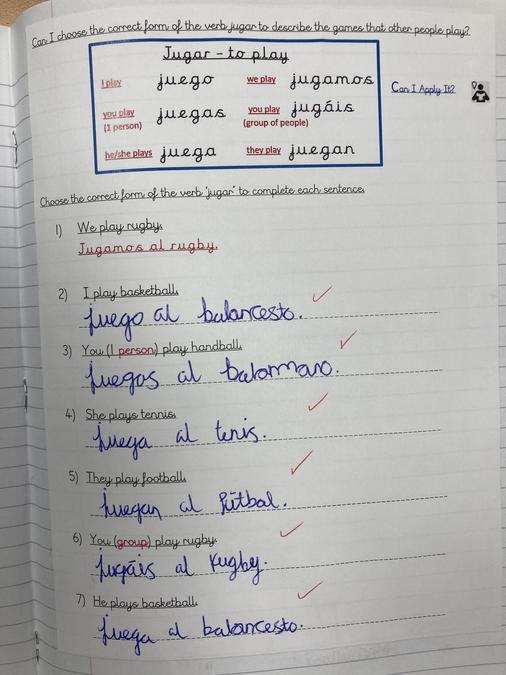 Can I choose the correct form of the verb jugar to describe the games that other people play?
Jugar - to play
I play juego we play jugamos
you play (1 person) juegas you play (group of people) jugáis
he/she plays juega they play juegan
Can I Apply It?
Choose the correct form of the verb 'jugar' to complete each sentence.
1) We play rugby.
Jugamos al rugby.
2) I play basketball.
juego al balancesto.
3) You (1 person) play handball.
juegas al balonmano.
4) She plays tennis.
juega al tenis.
5) They play football.
juegan al fútbal.
6) You (group) play rugby.
jugáis al rugby.
7) He plays basketball.
juega al balancesto.